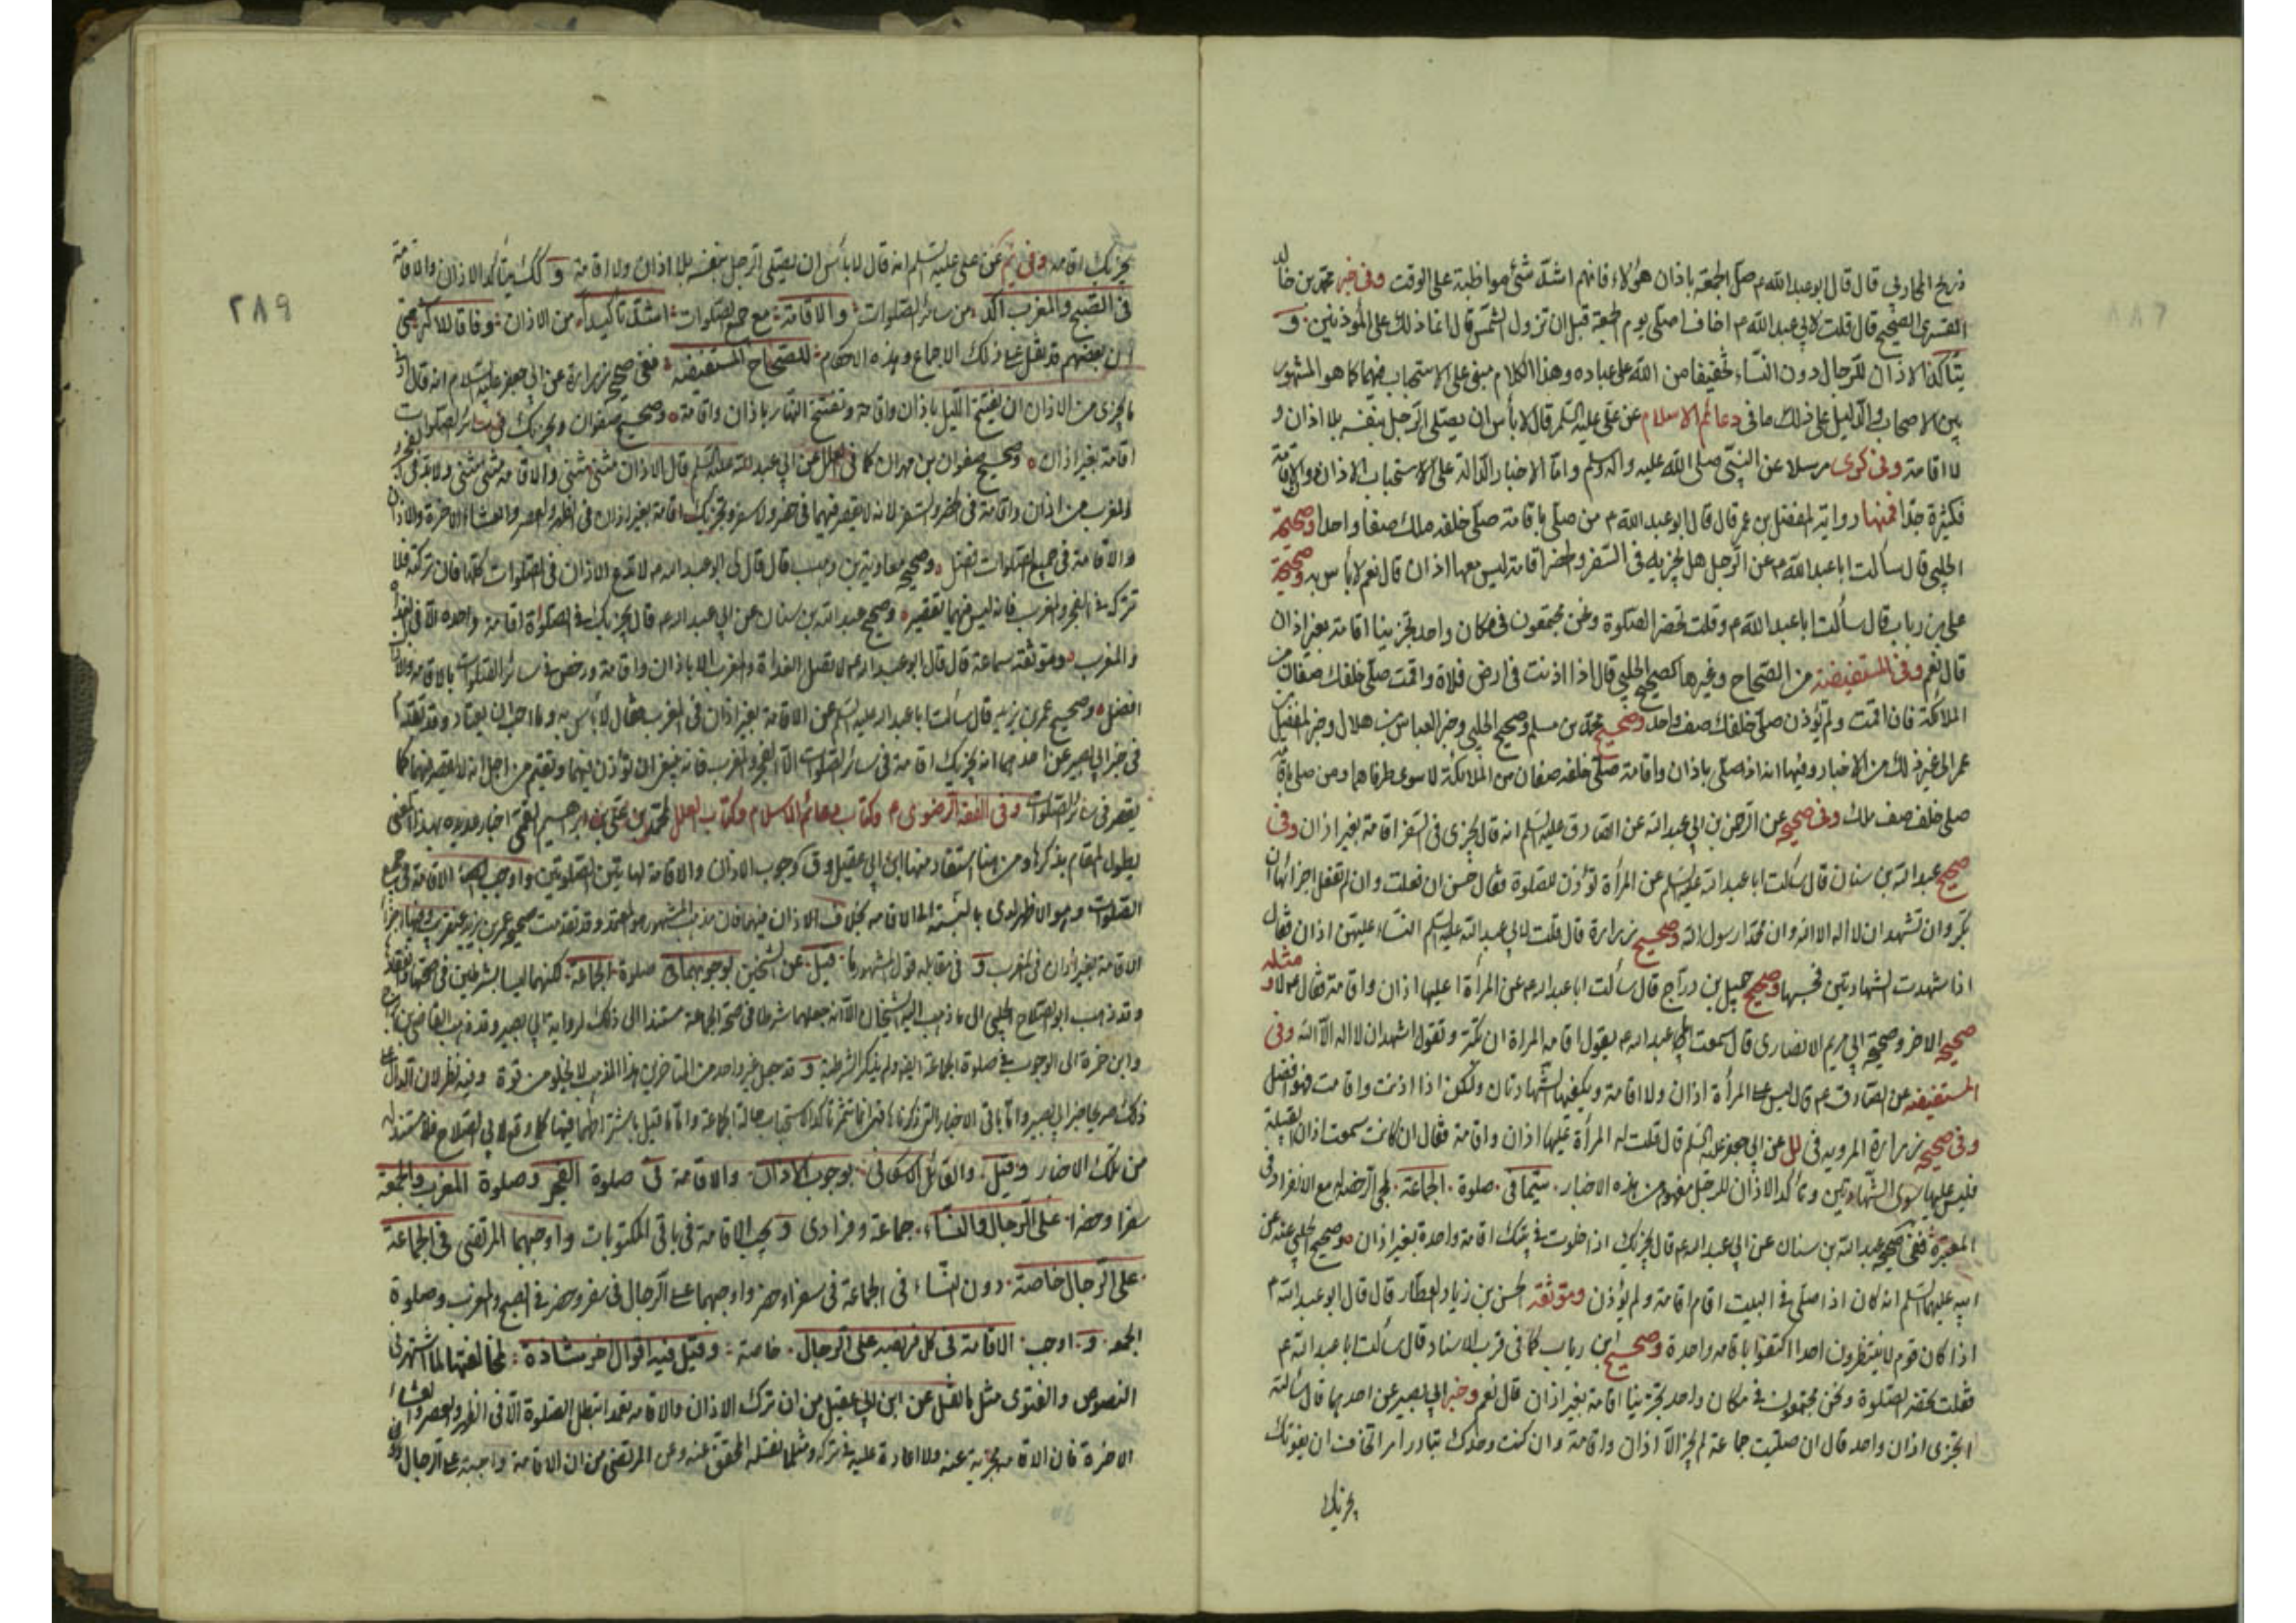 ذريح المحاربي قال قال ابو عبد الله م صل الجمعة باذان هؤلاء فانهم اشد شئ مواظبة على الوقت وفى خبر محمد بن خالد
القسرى الصحيح قال قلت لابى عبد الله م اخاف ان اصلى يوم الجمعة قبل ان تزول الشمس قال انما ذلك على المؤذنين و
يتاكد الاذان للرجال دون النساء تخفيفا من الله على عباده وهذا الكلام مبنى على الاستحباب فيهما كما هو المشهور
بين الاصحاب والدليل على ذلك ما فى دعائم الاسلام عن على عليه السلم قال لا بأس ان يصلى الرجل بنفسه بلا اذان و
لا اقامة وفى كوى مرسلا عن النبى صلى الله عليه واله وسلم واما الاخبار الدالة على الاستحباب الاذان والاقامة
فكثيرة جدا فمنها رواية المفضل بن عمر قال قال ابو عبد الله م من صلى باقامة صلى خلفه ملك صفا واحدا وصحيحة
الحلبى قال سألت ابا عبد الله م عن الرجل هل يجزيه فى السفر والحضر اقامة ليس معها اذان قال نعم لا بأس به وصحيحة
على بن رباب قال سألت ابا عبد الله م وقلت تحضر الصلوة ونحن مجتمعون فى مكان واحد تجزينا اقامة بغير اذان
قال نعم وفى المستفيضة من الصحاح وغيرها كصحيح الحلبى قال اذا اذنت فى ارض فلاة واقمت صلى خلفك صفان من
الملائكة فان اقمت ولم تؤذن صلى خلفك صف واحد وصحيح محمد بن مسلم وصحيح الحلبى وخبر العباس بن هلال وخبر المفضل بن
عمر الى غير ذلك من الاخبار وفيها انه اذا صلى باذان واقامة صلى خلفه صفان من الملائكة لا سوى طرفاهما ومن صلى باقامة
صلى خلف صف ملك وفى صحيح عن الرحمن بن ابى عبد الله عن الصادق عليه السلم انه قال يجزى فى السفر اقامة بغير اذان وفى
صحيح عبد الله بن سنان قال سألت ابا عبد الله عليه السلم عن المرأة تؤذن للصلوة فقال حسن ان فعلت وان لم تفعل اجزائها ان
تكبر وان تشهد ان لا اله الا الله وان محمدا رسول الله وصحيح زرارة قال قلت لابى عبد الله عليه السلم النساء عليهن اذان فقال
اذا شهدت الشهادتين فحسبها وصحيح جميل بن دراج قال سألت ابا عبد الله م عن المرأة اعليها اذان واقامة فقال م لا ومثله
صحيحه الاخر وصحيحة ابى مريم الانصارى قال سمعت ابا عبد الله م يقول اقامة المراة ان تكبر وتقول اشهد ان لا اله الا الله وفى
المستفيضة عن الصادق م قال ليس على المرأة اذان ولا اقامة ويكفيها الشهادتان ولكن اذا اذنت واقامت فهو افضل
وفى صحيحه زرارة المروية فى لل عن ابى جعفر عليه السلم قال قلت له المرأة عليها اذان واقامة فقال ان كانت سمعت اذان القبيلة
فليس عليها سوى الشهادتين وتأكد الاذان للرجل مفهوم من هذه الاخبار سيما فى صلوة الجماعة مع الانفراد وفى
المعتبرة ففى صحيح عبد الله بن سنان عن ابى عبد الله م قال يجزيك اذا خلوت فى بيتك اقامة واحدة بغير اذان وصحيح الحلبى عنه عن
ابيه عليهما السلم انه كان اذا صلى فى البيت اقام اقامة ولم يؤذن وموثقة الحسن بن زياد العطار قال قال ابو عبد الله م
اذا كان قوم لا ينتظرون احدا اكتفوا باقامة واحدة وصحيح ابن رباب كما فى قرب الاسناد قال سألت ابا عبد الله م
فقلت تحضر الصلوة ونحن مجتمعون فى مكان واحد تجزينا اقامة بغير اذان قال نعم وخبر ابى بصير عن احدهما قال سألته
ايجزى اذان واحد قال ان صليت جماعة لم يجز الا اذان واقامة وان كنت وحدك تبادر امرا تخاف ان يفوتك
يجزيك
٢٨٩
يجزيك اقامة وفى عن على عليه السلم انه قال لا بأس ان يصلى الرجل بنفسه بلا اذان ولا اقامة و كك يتأكد الاذان والاقامة
فى الصبح والمغرب اكد من سائر الصلوات والاقامة مع جميع الصلوات اشد تأكيدا من الاذان وفاقا للاكثر حتى
ان بعضهم قد نقل على ذلك الاجماع وهذه الاحكام للصحاح المستفيضة ففى صحيح زرارة عن ابى جعفر عليه السلام انه قال ادنى
ما يجزى من الاذان ان تفتتح الليل باذان واقامة وتفتتح النهار باذان واقامة وصحيح صفوان ويجزيك فى سائر الصلوات
اقامة بغير اذان وصحيح صفوان بن مهران كما فى العلل عن ابى عبد الله عليه السلم قال الاذان مثنى مثنى والاقامة مثنى مثنى ولا بد فى الفجر
والمغرب من اذان واقامة فى الحضر والسفر لانه لا يقصر فيهما فى حضر ولا سفر وتجزيك اقامة بغير اذان فى الظهر والعصر والعشاء الاخرة والاذان
والاقامة فى جميع الصلوات افضل وصحيح معاوية بن وهب قال قال لى ابو عبد الله م لا تدع الاذان فى الصلوات كلها فان تركته فلا
تتركه فى الفجر والمغرب فانه ليس فيهما تقصير وصحيح عبد الله بن سنان عن ابى عبد الله م قال يجزيك فى الصلواة اقامة واحده الا فى الغداة
والمغرب وموثقة سماعة قال قال ابو عبد الله م لا تصل الغداة والمغرب الا باذان واقامة ورخص فى سائر الصلوات بالاقامة والاذان
افضل وصحيح عمر بن يزيد قال سألت ابا عبد الله عليه السلم عن الاقامة بغير اذان فى المغرب فقال لا بأس به وما احب ان يعتاد وقد تقدم
فى خبر ابى بصير عن احدهما انه يجزيك اقامة فى سائر الصلوات الا الفجر والمغرب فانه ينبغى ان تؤذن فيهما وتقيم من اجل انه لا يقصر فيهما كما
يقصر فى سائر الصلوات وفى الفقه الرضوى م وكتاب دعائم الاسلام وكتاب العلل لمحمد بن على بن ابرهيم القمى اخبار عديده بهذا المعنى
يطول المقام بذكرها ومن هنا استفاد منها ابن ابى عقيل وق كوجوب الاذان والاقامة لهاتين الصلوتين واوجب الاقامة فى جميع
الصلوات وهو الاظهر لدى بالنسبة الى الاقامة بخلاف الاذان فيهما فان مذهب المشهور هو المعتمد وقد تقدمت صحيح عمر بن يزيد
الاقامة بغير اذان فى المغرب و فى مقابلة قول المشهور ما قيل عن الشيخين بوجوبهما فى صلوة الجماعة لكنهما ليسا بشرطين فى صحتها
وقد ذهب ابو الصلاح الحلبى الى ما ذهب اليه الشيخان الا انه جعلهما شرطا فى صحة الجماعة مستندا الى ذلك لرواية ابى بصير وقد ذهب القاضى
وابن حمزة الى الوجوب فى صلوة الجماعة ايضا ولم يذكر الشرطية و قد جعل غير واحد من المتاخرين هذا المذهب لا يخلو من قوة وفيه نظر لان الدال على
ذلك صريحا خبر ابى بصير واما باقى الاخبار التى ذكرناها فهى تأكد الاستحباب حالة الجماعة واما ما قيل باشتراطهما فيها كما وقع لابى الصلاح فلا مستند له
من تلك الاخبار وقيل والقائل الاسكافى بوجوب الاذان والاقامة فى صلوة الفجر وصلوة المغرب والجمعة
سفرا وحضرا على الرجال والنساء جماعة وفرادى و يجب الاقامة فى باقى المكتوبات واوجبهما المرتضى فى الجماعة
على الرجال خاصة دون النساء فى الجماعة فى سفر او حضر واوجبهما على الرجال فى سفر وحضر فى الصبح والمغرب وصلوة
الجمعه و اوجب الاقامة فى كل فريضة على الرجال خاصة وقيل فيه اقوال اخر شاذة لمخالفتها لما اشتهر فى
النصوص والفتوى مثل ما نقل عن ابن ابى عقيل من ان ترك الاذان والاقامة تعمدا تبطل الصلوة الا فى الظهر والعصر والعشاء
الاخرة فان الاقامة مجزية عنه ولا اعادة عليه فى تركه ومثل ما نقله المحقق عنه وعن المرتضى من ان الاقامة واجبة على الرجال